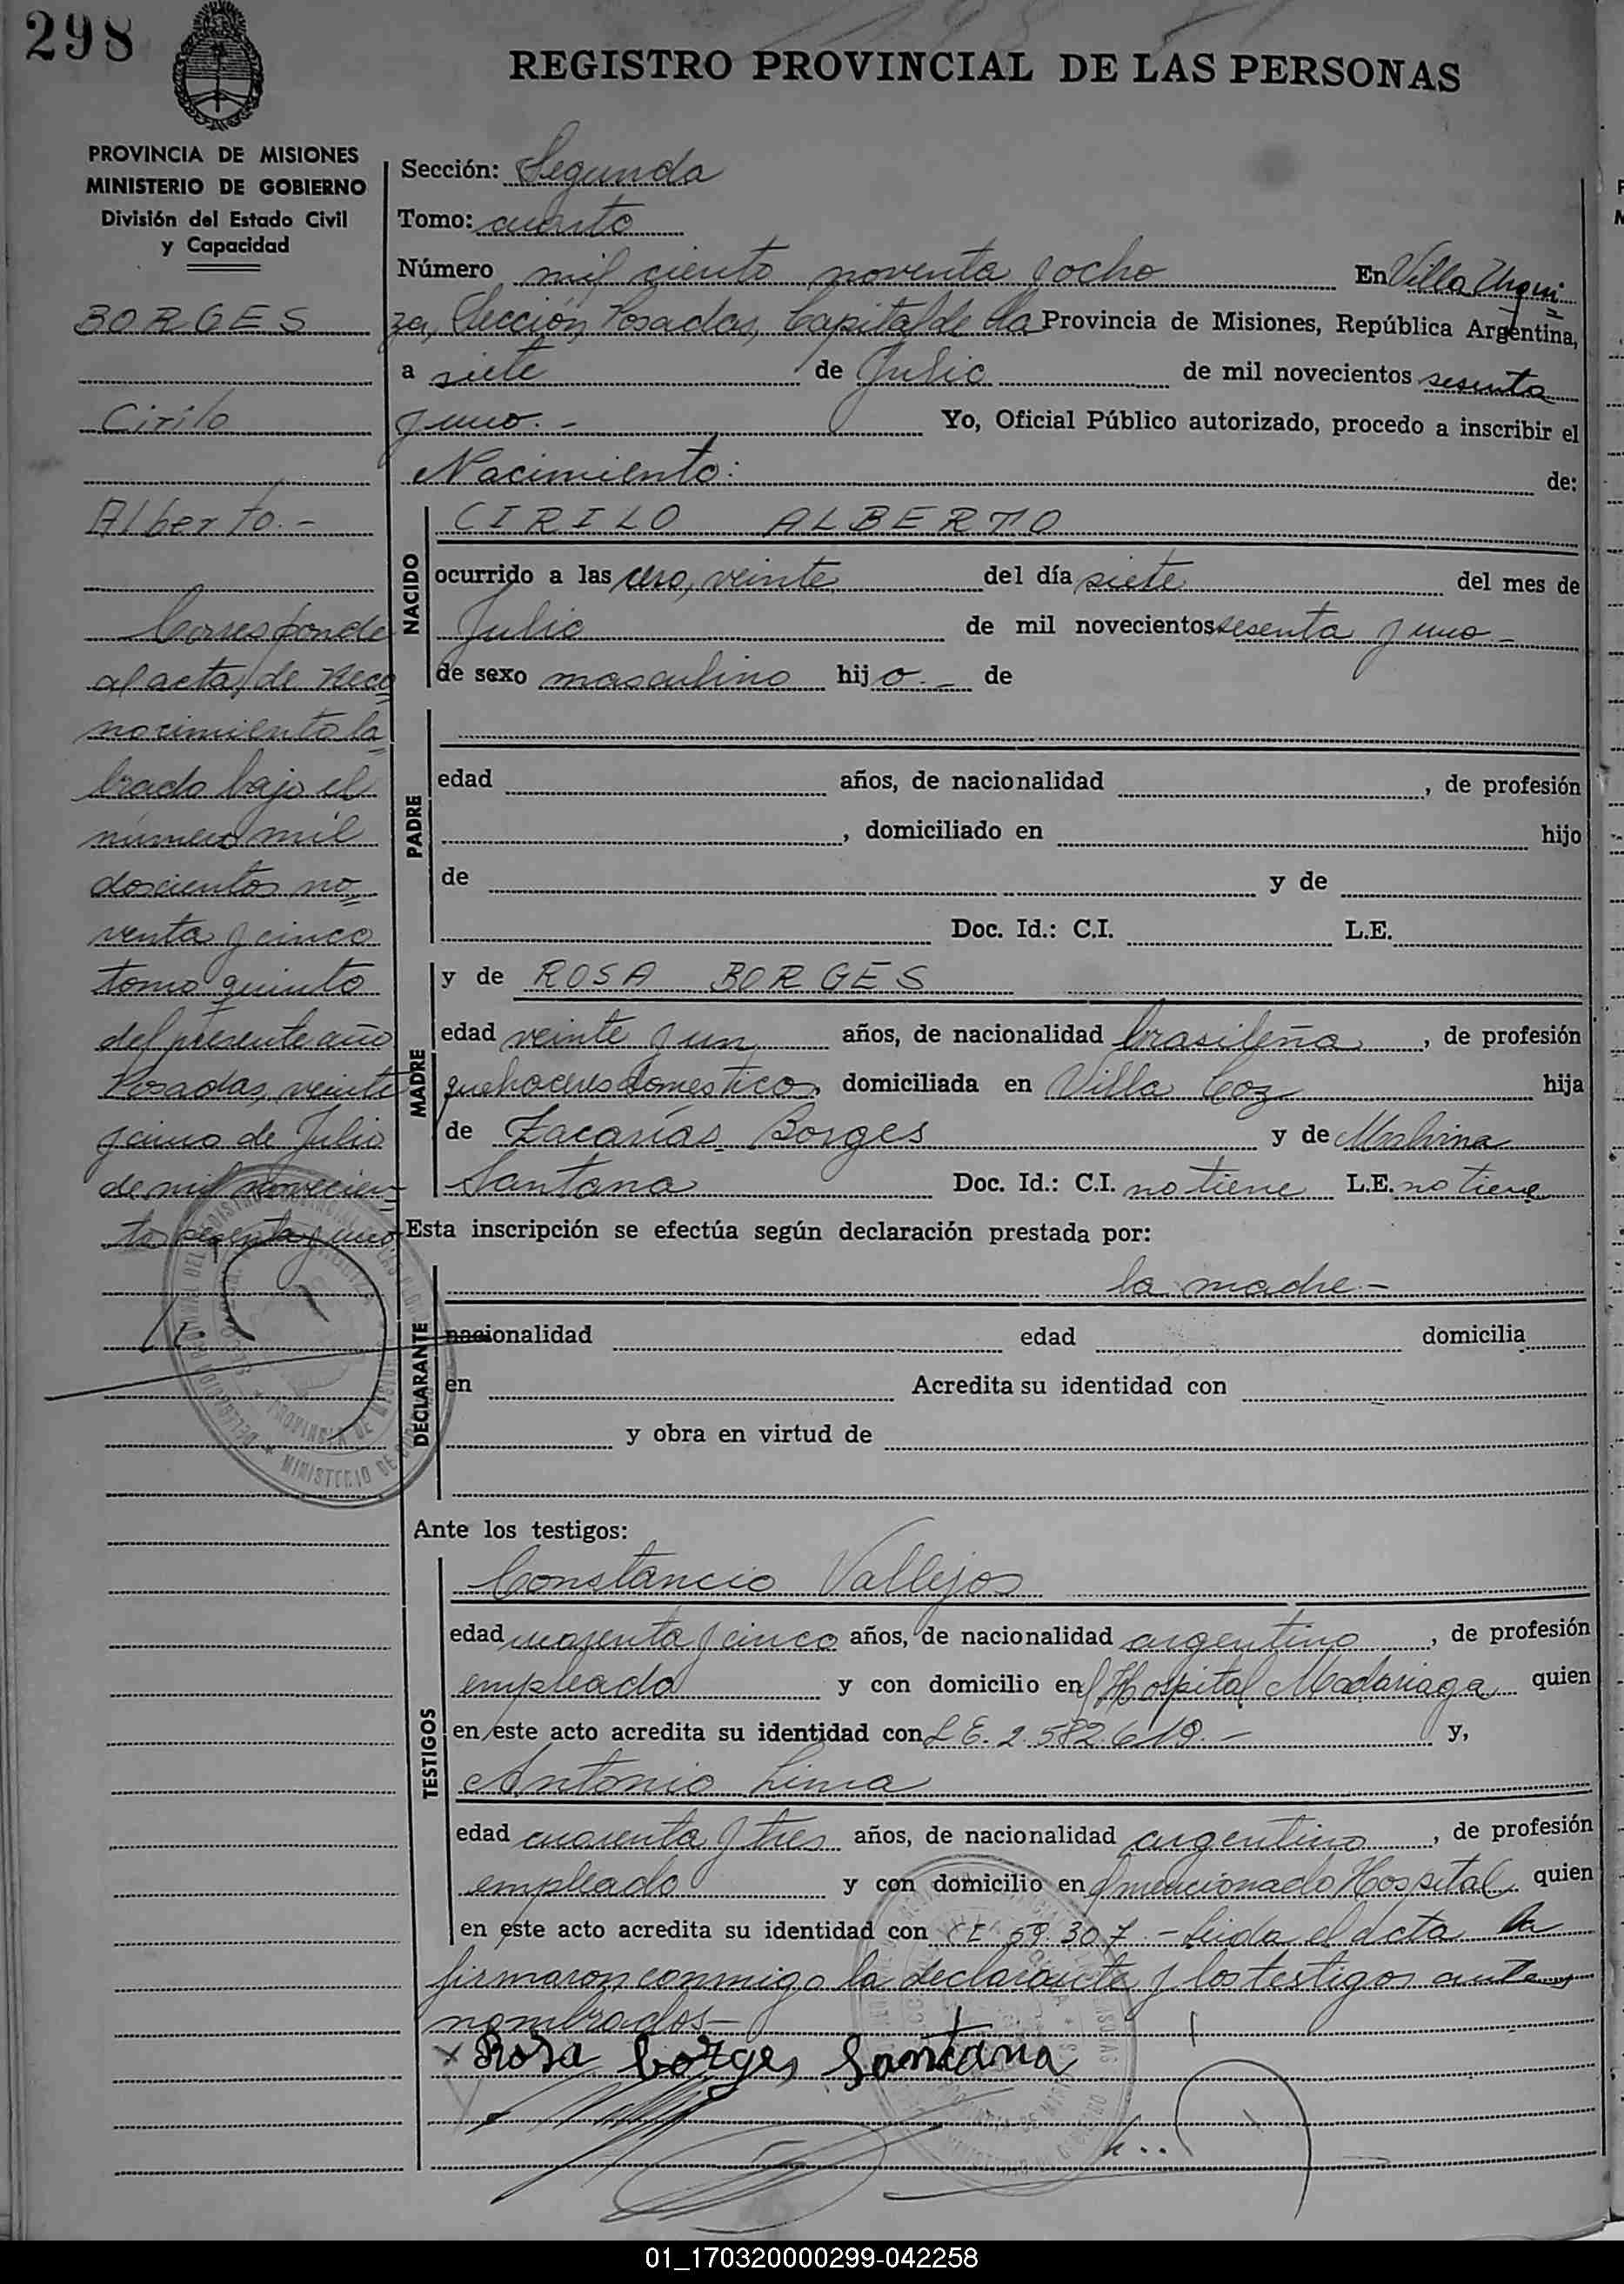 298
REGISTRO PROVINCIAL DE LAS PERSONAS
PROVINCIA DE MISIONES
MINISTERIO DE GOBIERNO
División del Estado Civil
y Capacidad
BORGES
Cirilo
Alberto.-
Corresponde
al acta de Reco
nocimiento la
brada bajo el
número mil
doscientos no
venta y cinco
tomo quinto
del presente año
Posadas, veinti
cinco de Julio
de mil novecien
tos sesenta y uno
Sección: Segunda
Tomo: cuarto
Número mil ciento noventa y ocho En Villa Urqui
za, Sección Posadas, Capital de la Provincia de Misiones, República Argentina,
a siete de Julio de mil novecientos sesenta
y uno.- Yo, Oficial Público autorizado, procedo a inscribir el
Nacimiento: de:
NACIDO
CIRILO ALBERTO
ocurrido a las cero, veinte del día siete del mes de
Julio de mil novecientos sesenta y uno-
de sexo masculino hijo.- de
PADRE
edad años, de nacionalidad , de profesión
, domiciliado en hijo
de y de
Doc. Id.: C.I. L.E.
MADRE
y de ROSA BORGES
edad veinte y un años, de nacionalidad brasileña, de profesión
quehaceres domesticos, domiciliada en Villa Coz hija
de Zacarías Borges y de Malvina
Santana Doc. Id.: C.I. no tiene L.E. no tiene
Esta inscripción se efectúa según declaración prestada por:
DECLARANTE
la madre.-
nacionalidad edad domicilia
en Acredita su identidad con
y obra en virtud de
Ante los testigos:
TESTIGOS
Constancio Vallejos
edad cuarenta y cinco años, de nacionalidad argentino, de profesión
empleado y con domicilio en Hospital Madariaga quien
en este acto acredita su identidad con L E. 2.582.619.- y,
Antonio Lima
edad cuarenta y tres años, de nacionalidad argentino, de profesión
empleado y con domicilio en mencionado Hospital quien
en este acto acredita su identidad con CI 59.307.- Leida el acta la
firmaron conmigo la declarante y los testigos antes
nombrados-
x Rosa borges Santana
01_170320000299-042258